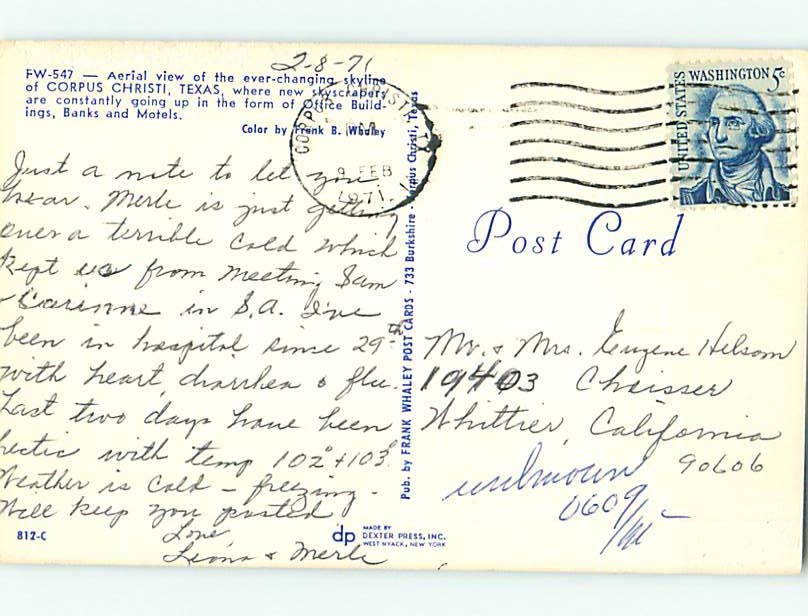 2-8-71
FW-547 — Aerial view of the ever-changing skyline
of CORPUS CHRISTI, TEXAS, where new skyscrapers
are constantly going up in the form of Office Build-
ings, Banks and Motels.
Color by Frank B. Whaley
Just a note to let you
hear. Merle is just getting
over a terrible cold which
kept us from meeting Sam
- Corinne in S.A. I've
been in hospital since 29th
with heart, diarrhea & flu.
Last two days have been
hectic with temp 102° + 103°.
Weather is cold - freezing.
Will keep you posted
Love,
Leona & Merle
812-C
Pub. by FRANK WHALEY POST CARDS - 733 Burkshire - Corpus Christi, Texas
dp MADE BY
DEXTER PRESS, INC.
WEST NYACK, NEW YORK
CORPUS CHRISTI, TX
PM
9 FEB
1971
UNITED STATES
WASHINGTON 5c
Post Card
Mr. & Mrs. Eugene Helsom
19403 Choisser
Whittier, California
90606
unknown
0609